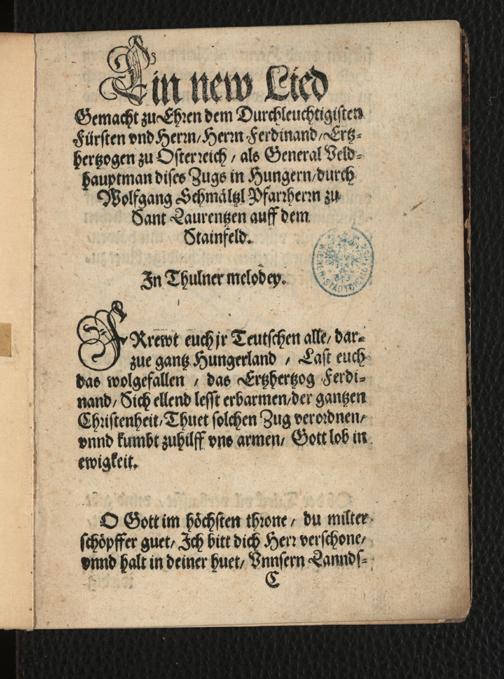 Ain new Lied
Gemacht zu Ehren dem Durchleuchtigisten
Fürsten vnd Herrn/ Herrn Ferdinand/ Ertz-
hertzogen zu Osterreich/ als General Veld-
hauptman dises Zugs in Hungern/ durch
Wolfgang Schmältzl Pfarrherrn zu
Sant Laurentzen auff dem
Stainfeld.
In Thulner melodey.
FRrewt euch jr Teutschen alle/ dar-
zue gantz Hungerland/ Last euch
das wolgefallen/ das Ertzhertzog Ferdi-
nand/ Sich ellend lesst erbarmen/ der gantzen
Christenheit/ Thuet solchen Zug verordnen/
vnnd kumbt zuhilff vns armen/ Gott lob in
ewigkeit.
O Gott im höchsten throne/ du milter
schöpffer guet/ Ich bitt dich Herr verschone/
vnnd halt in deiner huet/ Vnnsern Lannds-
C